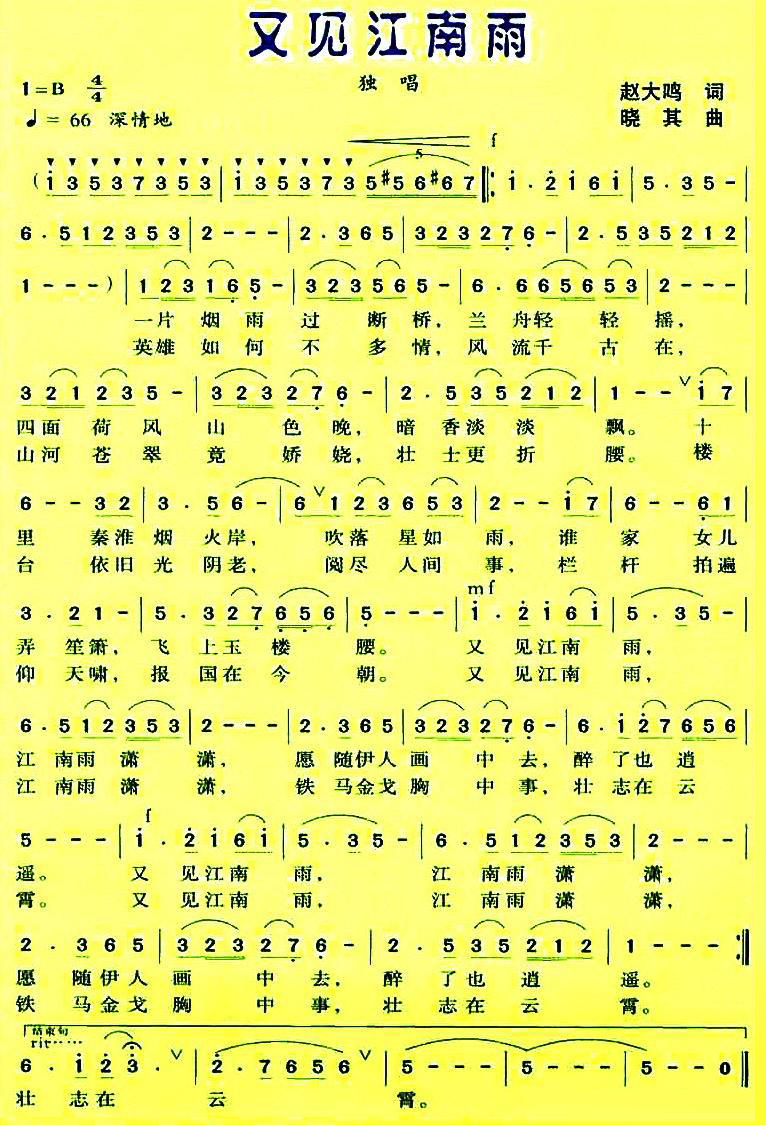 又见江南雨
1=B 4/4 独唱 赵大鸣 词
♩= 66 深情地 晓其 曲
f
5
( i 3 5 3 7 3 5 3 | i 3 5 3 7 3 5 #5 6 #6 7 ‖: i · 2 i 6 i | 5 · 3 5 - |
6 · 5 1 2 3 5 3 | 2 - - - | 2 · 3 6 5 | 3 2 3 2 7 6 - | 2 · 5 3 5 2 1 2
1 - - - ) | 1 2 3 1 6 5 - | 3 2 3 5 6 5 - | 6 · 6 6 5 6 5 3 | 2 - - -
一片烟雨过断桥,兰舟轻轻摇,
英雄如何不多情,风流千古在,
3 2 1 2 3 5 - | 3 2 3 2 7 6 - | 2 · 5 3 5 2 1 2 | 1 - - ∨ i 7
四面荷风山色晚,暗香淡淡飘。十
山河苍翠竟娇娆,壮士更折腰。楼
6 - - 3 2 | 3 · 5 6 - | 6 ∨ 1 2 3 6 5 3 | 2 - - i 7 | 6 - - 6 1
里秦淮烟火岸,吹落星如雨,谁家女儿
台依旧光阴老,阅尽人间事,栏杆拍遍
mf
3 · 2 1 - | 5 · 3 2 7 6 5 6 | 5 - - - | i · 2 i 6 i | 5 · 3 5 -
弄笙箫,飞上玉楼腰。又见江南雨,
仰天啸,报国在今朝。又见江南雨,
6 · 5 1 2 3 5 3 | 2 - - - | 2 · 3 6 5 | 3 2 3 2 7 6 - | 6 · i 2 7 6 5 6
江南雨潇潇,愿随伊人画中去,醉了也逍
江南雨潇潇,铁马金戈胸中事,壮志在云
f
5 - - - | i · 2 i 6 i | 5 · 3 5 - | 6 · 5 1 2 3 5 3 | 2 - - -
遥。又见江南雨,江南雨潇潇,
霄。又见江南雨,江南雨潇潇,
2 · 3 6 5 | 3 2 3 2 7 6 - | 2 · 5 3 5 2 1 2 | 1 - - - :‖
愿随伊人画中去,醉了也逍遥。
铁马金戈胸中事,壮志在云霄。
结束句
rit······
6 · i 2 3 · ∨ | 2 · 7 6 5 6 ∨ | 5 - - - | 5 - - - | 5 - - 0 ‖
壮志在云霄。